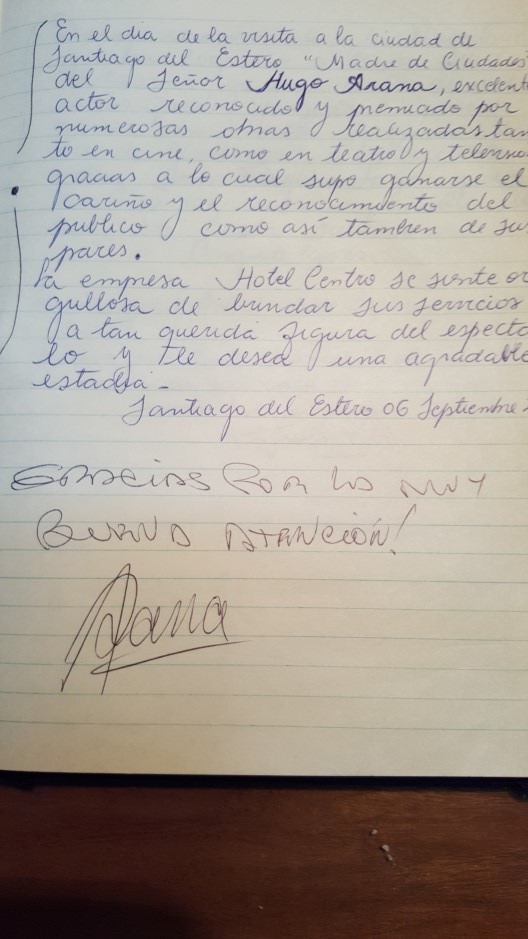 En el dia de la visita a la ciudad de
Santiago del Estero "Madre de Ciudades"
del Señor Hugo Arana, excelent
actor reconocido y premiado por
numerosas obras realizadas tan
to en cine, como en teatro y televisio
gracias a lo cual supo ganarse el
cariño y el reconocimiento del
publico como así tambien de sus
pares.
La empresa Hotel Centro se siente or
gullosa de brindar sus servicios
a tan querida figura del espectá
lo y le desea una agradable
estadía -
Santiago del Estero 06 Septiembre
GRACIAS POR LA MUY
BUENA ATENCIÓN!
Arana